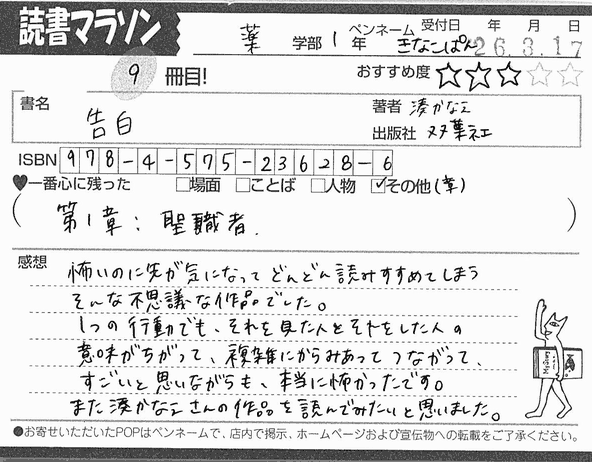 読書マラソン
薬 学部 1 年 ペンネーム きなこぱん 受付日 年 月 日
26.3.17
9 冊目! おすすめ度 ★★★☆☆
書名 告白
著者 湊かなえ
出版社 双葉社
ISBN 978-4-575-23628-6
♥一番心に残った □場面 □ことば □人物 ☑その他(章)
(第1章:聖職者.)
感想
怖いのに先が気になってどんどん読みすすめてしまう
そんな不思議な作品でした。
1つの行動でも、それを見た人とそれをした人の
意味がちがって、複雑にからみあってつながって、
すごいと思いながらも、本当に怖かったです。
また湊かなえさんの作品を読んでみたいと思いました。
●お寄せいただいたPOPはペンネームで、店内で掲示、ホームページおよび宣伝物への転載をご了承ください。